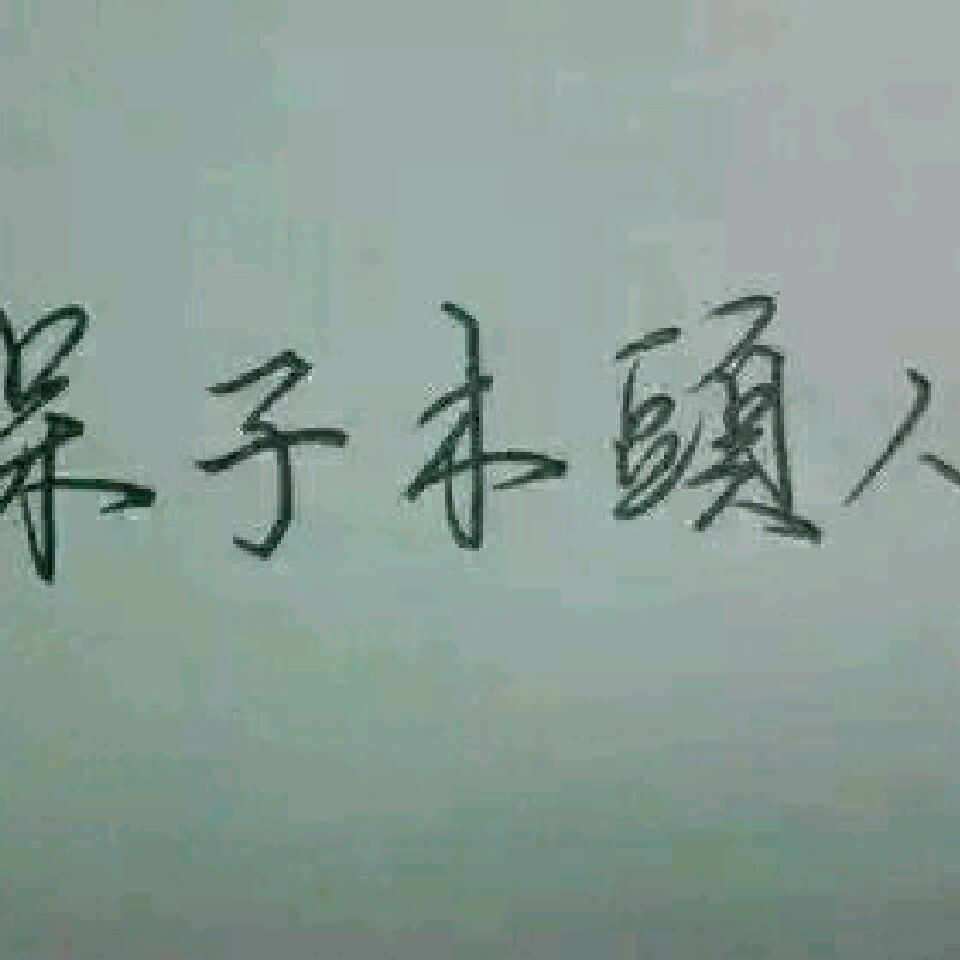 呆子木頭人